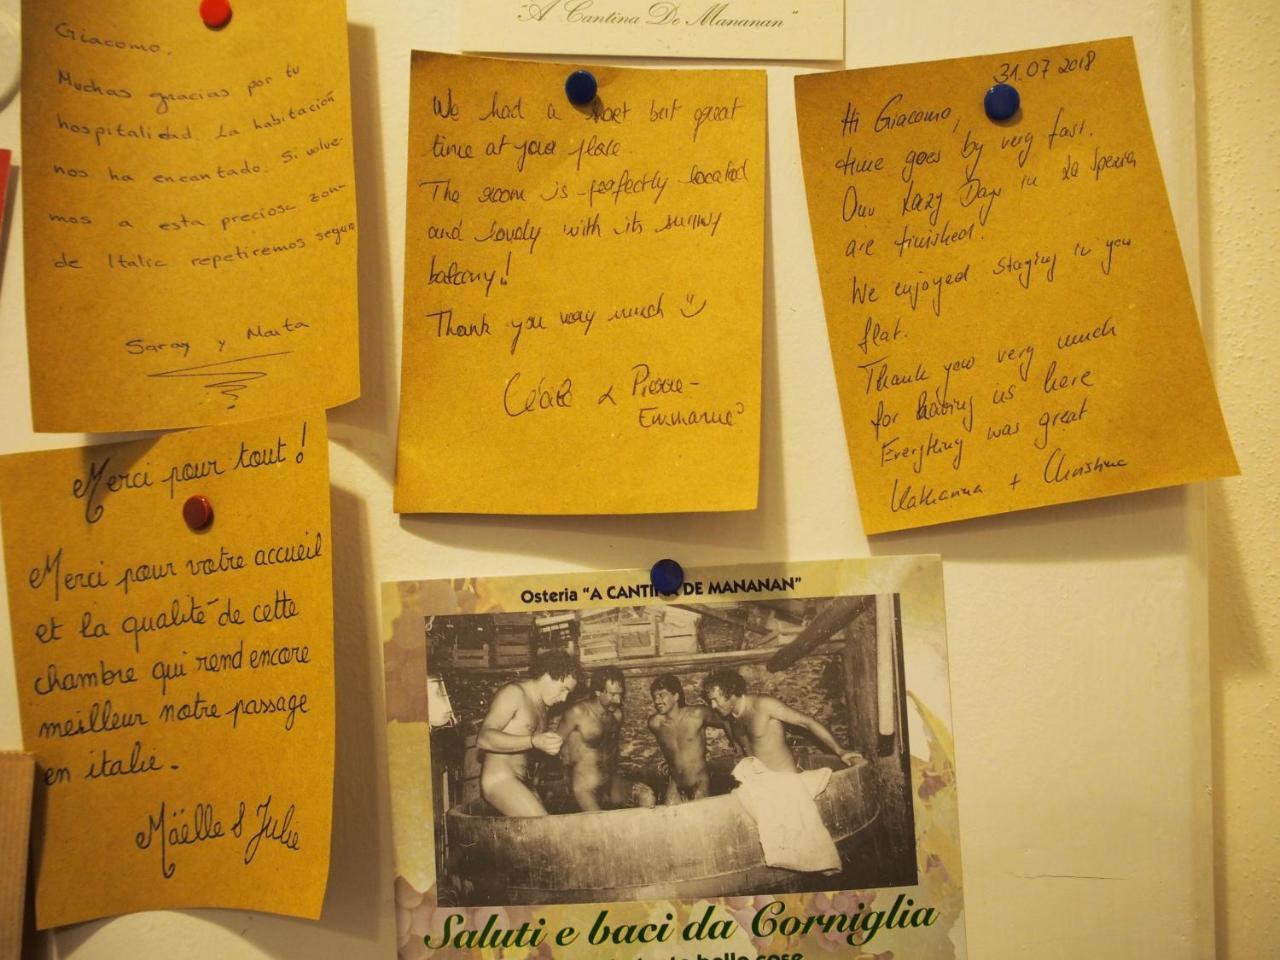 "A Cantina De Mananan"
Giacomo,
Muchas gracias por tu
hospitalidad. La habitación
nos ha encantado. Si volve-
mos a esta preciosa zon-
de Italia repetiremos segun
Saray y Marta
We had a short but great
time at your place.
The room is perfectly located
and lovely with its sunny
balcony!
Thank you very much
Cécile & Pierre-
Emmanuel
31.07 2018
Hi Giacomo,
time goes by very fast.
Our Lazy Days in La Spezia
are finished.
We enjoyed staying in you
flat.
Thank you very much
for having us here
Everything was great
Katharina + Christina
Merci pour tout!
Merci pour votre accueil
et la qualité de cette
chambre qui rend encore
meilleur notre passage
en italie.
Maëlle & Julie
Osteria "A CANTINA DE MANANAN"
Saluti e baci da Corniglia
belle cose